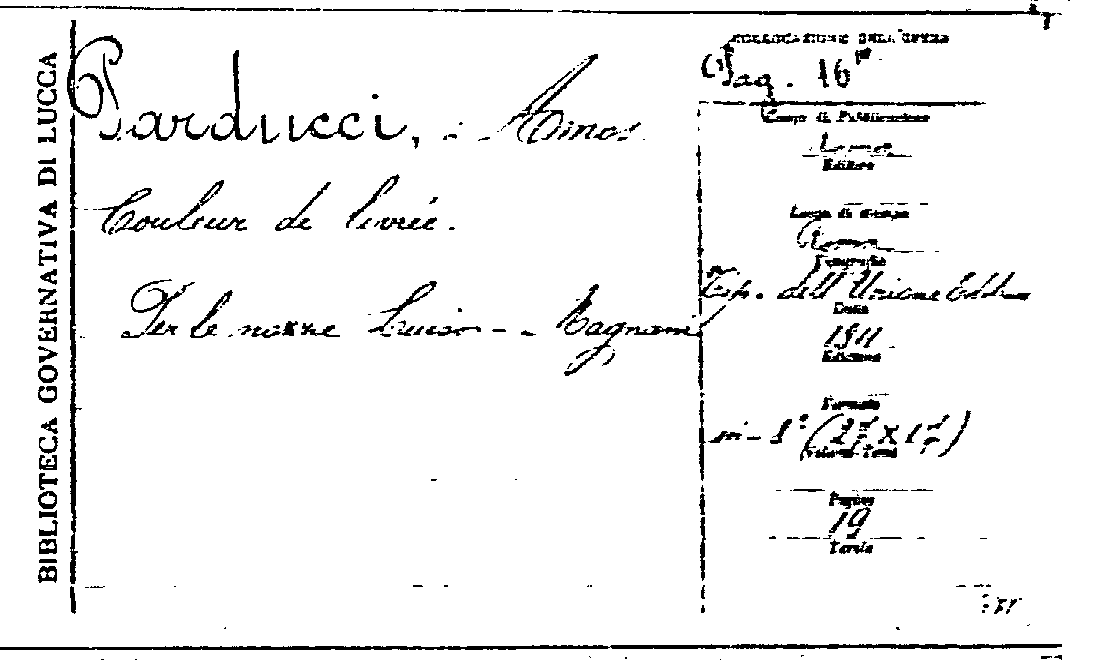 BIBLIOTECA GOVERNATIVA DI LUCCA
Parducci, Amos
Couleur de livrée.
Per le nozze Luiso - Magnani
COLLOCAZIONE DELL'OPERA
16
Luogo di Pubblicazione
Roma
Editore
Luogo di stampa
Roma
Tipografia
Tip. dell'Unione Ed.
Data
1911
Edizione
Formato
in-8° (27 x 17)
Volumi-Tomi
Pagine
19
Tavole